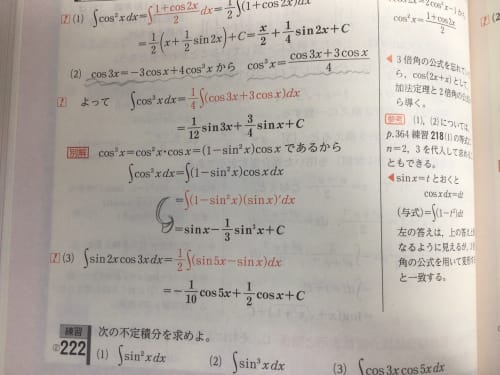 (1) ∫cos²x dx=∫(1+cos2x)/2 dx=1/2∫(1+cos2x)dx
=1/2(x+1/2 sin2x)+C=x/2+1/4 sin2x+C
(2) cos3x=-3cosx+4cos³x から cos³x=(cos3x+3cosx)/4
よって ∫cos³x dx=1/4∫(cos3x+3cosx)dx
=1/12 sin3x+3/4 sinx+C
別解 cos³x=cos²x・cosx=(1-sin²x)cosx であるから
∫cos³x dx=∫(1-sin²x)cosx dx
=∫(1-sin²x)(sinx)'dx
=sinx-1/3 sin³x+C
(3) ∫sin2x cos3x dx=1/2∫(sin5x-sinx)dx
=-1/10 cos5x+1/2 cosx+C
練習
②222
次の不定積分を求めよ。
(1) ∫sin²x dx (2) ∫sin³x dx (3) ∫cos3x cos5x dx
cos²x=(1+cos2x)/2
◀3倍角の公式を忘れて
ら，cos(2x+x)として，
加法定理と2倍角の公式
ら導く。
参考 (1)，(2)については，
p.364 練習 218(1)の等式
n=2，3を代入して求め
ともできる。
◀sinx=t とおくと
cosx dx=dt
(与式)=∫(1-t²)dt
左の答えは，上の答えと
なるように見えるが，
角の公式を用いて変形
と一致する。